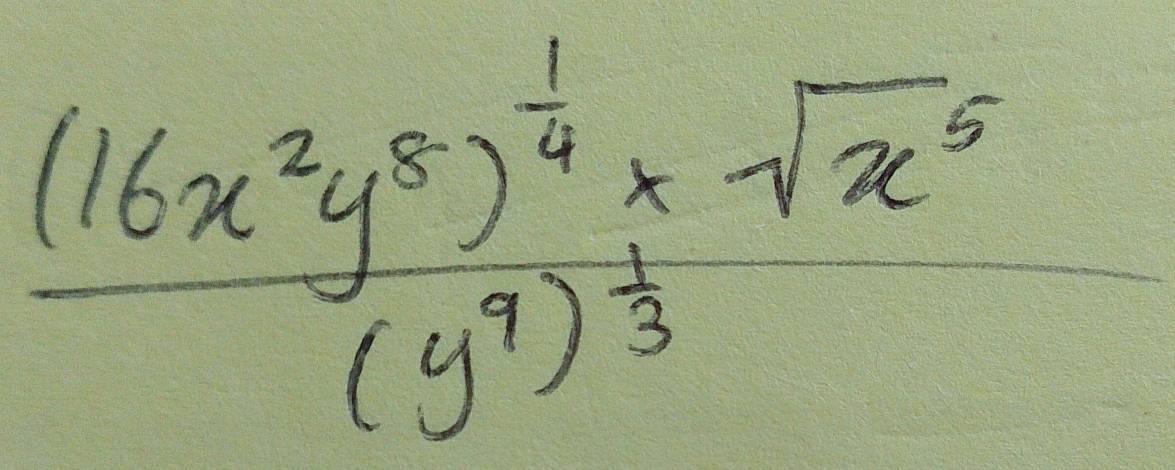 (16x²y⁸)^(1/4) × √x⁵
(y⁹)^(1/3)